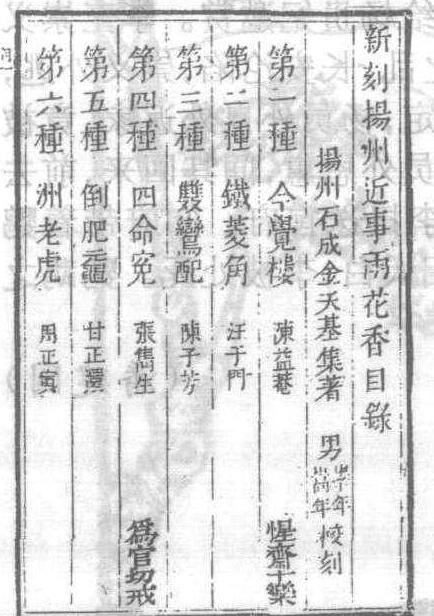 新刻揚州近事雨花香目錄
揚州石成金天基集著 男 年年 校刻
第一種 今覺樓 陳益菴
惺齋十樂
第二種 鐵菱角 汪于門
第三種 雙鸞配 陳子芳
第四種 四命冤 張雋生
爲官切戒
第五種 倒肥黿 甘正還
第六種 洲老虎 周正寅